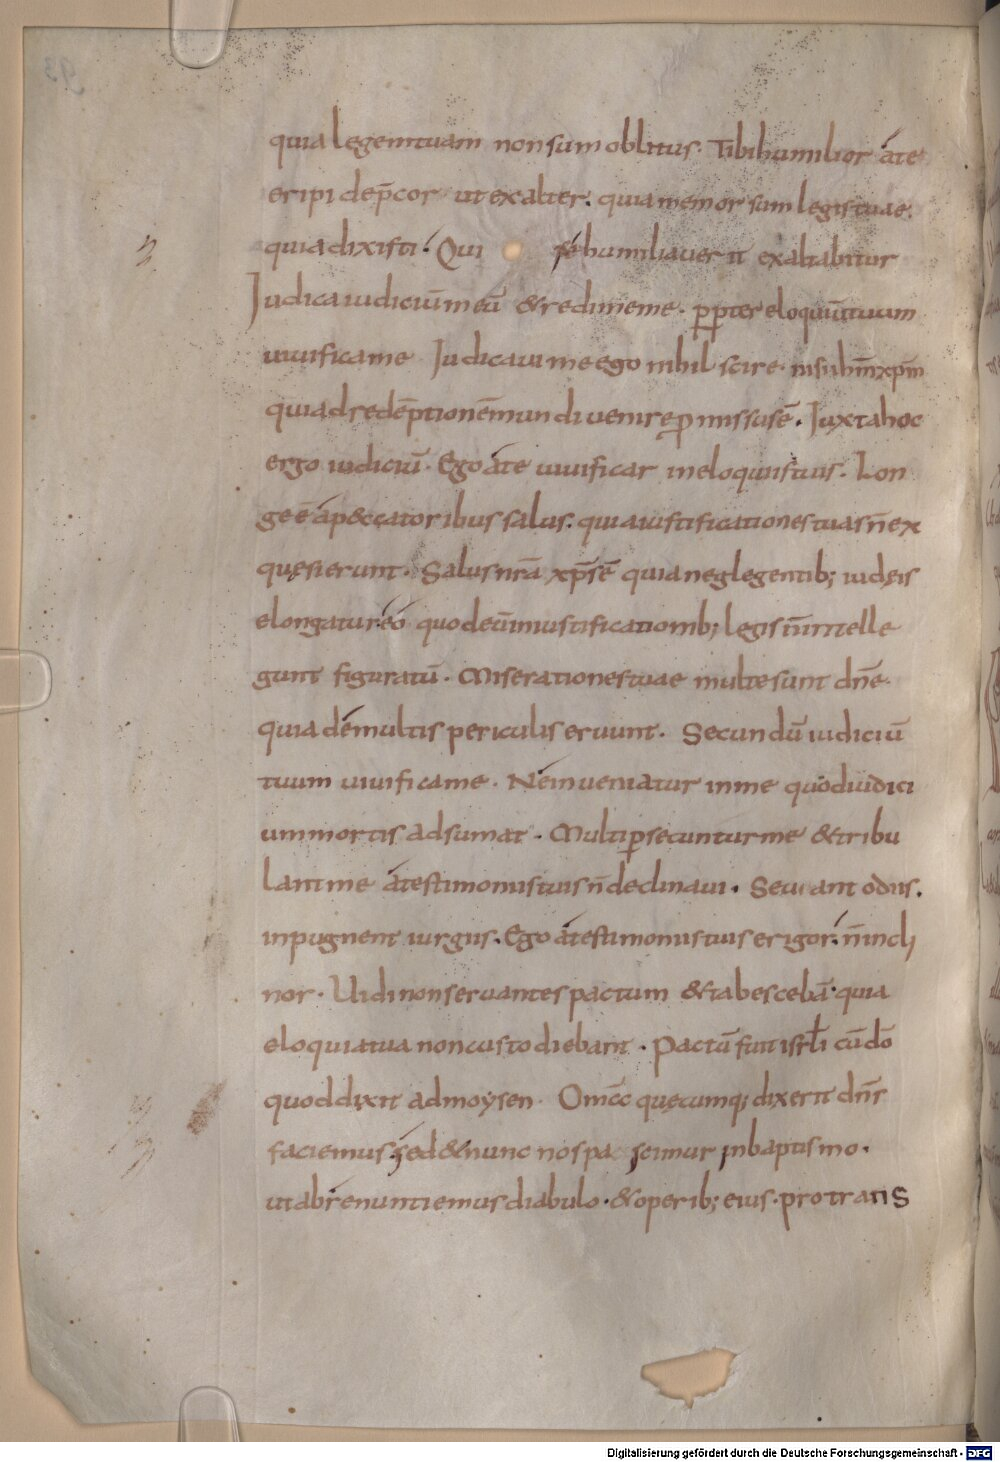 quia legem tuam non sum oblitus. Tibi humilior áte
eripi dep̄cor ut exalter. quia memor sum legis tuae.
quia dixisti. Qui se humiliaverit exaltabitur
Iudica iudiciū meū & redime me. ꝓpter eloquiū tuum
vivifica me. Iudicavi me ego nihil scire. nisi ihm̄ xp̄m
qui ad redēptionē mundi venire ꝓmissus ē. Iuxta hoc
ergo iudiciū. Ego áte vivificar in eloquiis tuis. Lon
ge ē áp&ccatoribus salus. quia iustificationes tuas n̄ ex
quęsierunt. Salus nr̄a xp̄s ē quia neglegentib; iudęis
elongatur éó quod eū in iustificationib; legis n̄ intelle
gunt figuratū. Miserationes tuae multe sunt dn̄e.
quia dé multis periculis eruunt. Secundū iudiciū
tuum vivifica me. Né inveniatur in me quod iudici
um mortis adsumat. Multi ꝑsecuntur me & tribu
lant me átestimoniis tuis n̄ declinavi. Seviant odiis.
inpugnent iurgiis. Ego átestimoniis tuis erigor. n̄ incli
nor. Vidi non servantes pactum & tabescebā. quia
eloquia tua non custodiebant. Pactū fuit isrl̄i cū dō
quod dixit ad moysen. Omc̄ quęcumq; dixerit dn̄s
faciemus. sed & nunc nos pa scimur in baptismo.
ut abrenuntiemus diabulo. & operib; eius. pro tratis
93
Digitalisierung gefördert durch die Deutsche Forschungsgemeinschaft - DFG